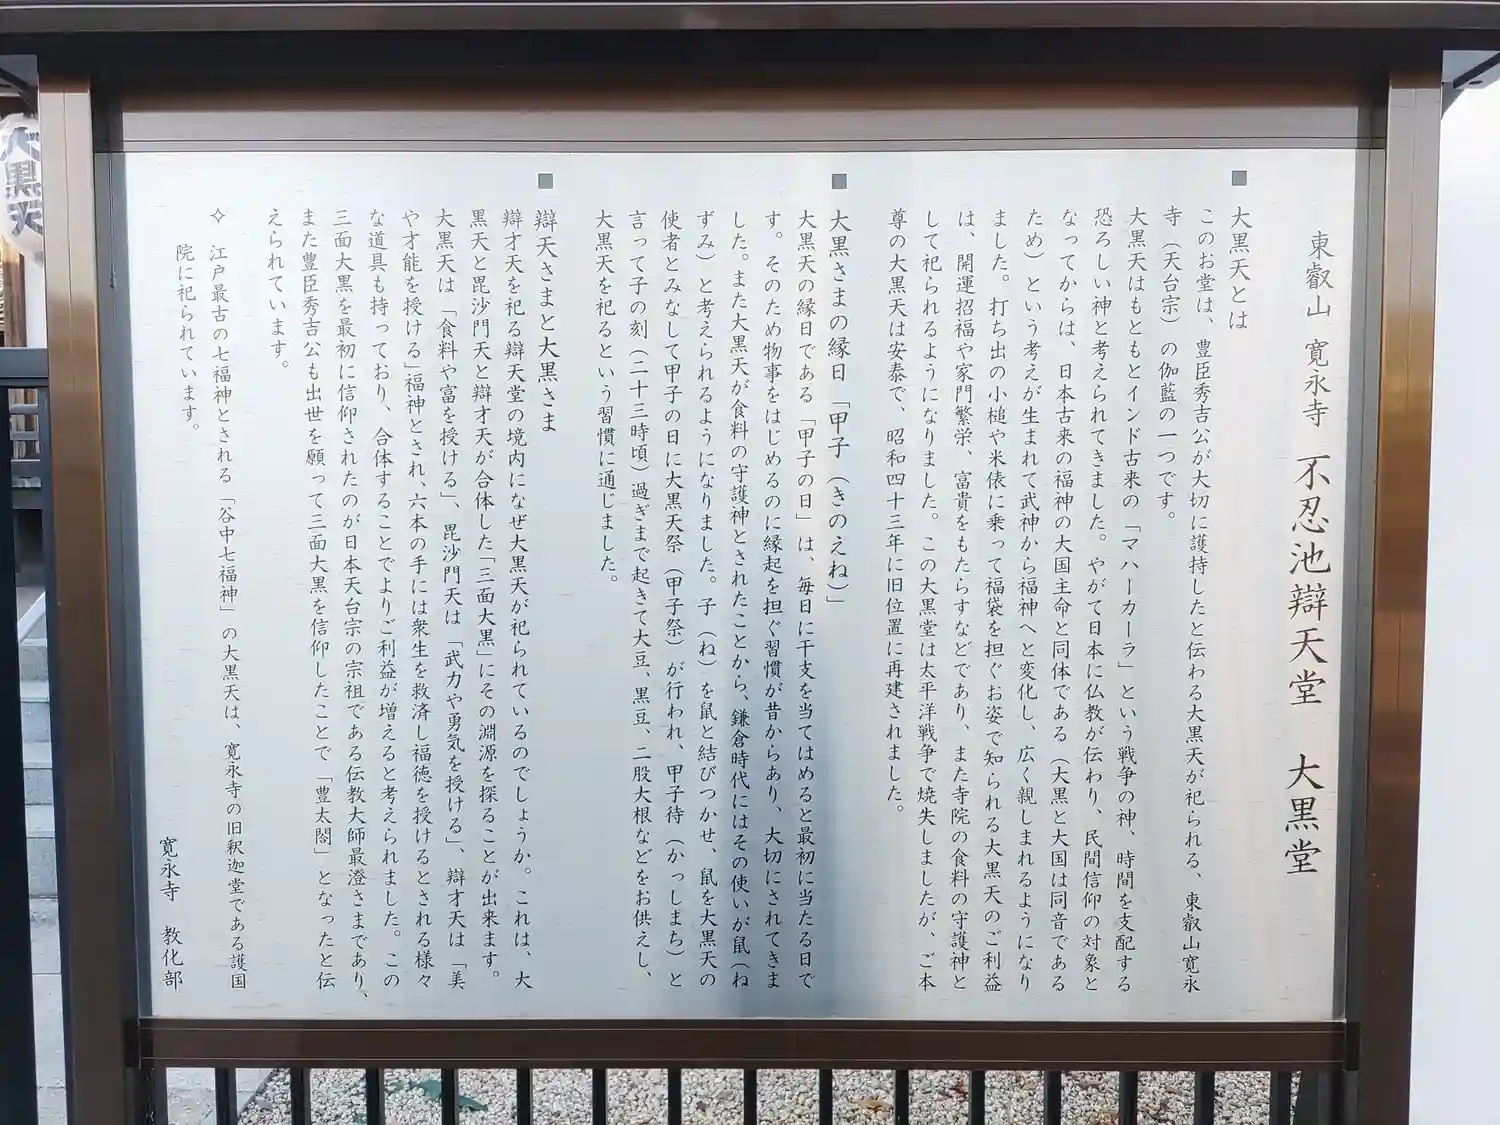 東叡山 寛永寺 不忍池辯天堂 大黒堂
■ 大黒天とは
このお堂は、豊臣秀吉公が大切に護持したと伝わる大黒天が祀られる、東叡山寛永
寺（天台宗）の伽藍の一つです。
大黒天はもともとインド古来の「マハーカーラ」という戦争の神、時間を支配する
恐ろしい神と考えられてきました。やがて日本に仏教が伝わり、民間信仰の対象と
なってからは、日本古来の福神の大国主命と同体である（大黒と大国は同音である
ため）という考えが生まれて武神から福神へと変化し、広く親しまれるようになり
ました。打ち出の小槌や米俵に乗って福袋を担ぐお姿で知られる大黒天のご利益
は、開運招福や家門繁栄、富貴をもたらすなどであり、また寺院の食料の守護神と
して祀られるようになりました。この大黒堂は太平洋戦争で焼失しましたが、ご本
尊の大黒天は安泰で、昭和四十三年に旧位置に再建されました。
■ 大黒さまの縁日「甲子（きのえね）」
大黒天の縁日である「甲子の日」は、毎日に干支を当てはめると最初に当たる日で
す。そのため物事をはじめるのに縁起を担ぐ習慣が昔からあり、大切にされてきま
した。また大黒天が食料の守護神とされたことから、鎌倉時代にはその使いが鼠（ね
ずみ）と考えられるようになりました。子（ね）を鼠と結びつかせ、鼠を大黒天の
使者とみなして甲子の日に大黒天祭（甲子祭）が行われ、甲子待（かっしまち）と
言って子の刻（二十三時頃）過ぎまで起きて大豆、黒豆、二股大根などをお供えし、
大黒天を祀るという習慣に通じました。
■ 辯天さまと大黒さま
辯才天を祀る辯天堂の境内になぜ大黒天が祀られているのでしょうか。これは、大
黒天と毘沙門天と辯才天が合体した「三面大黒」にその淵源を探ることが出来ます。
大黒天は「食料や富を授ける」、毘沙門天は「武力や勇気を授ける」、辯才天は「美
や才能を授ける」福神とされ、六本の手には衆生を救済し福徳を授けるとされる様々
な道具も持っており、合体することでよりご利益が増えると考えられました。この
三面大黒を最初に信仰されたのが日本天台宗の宗祖である伝教大師最澄さまであり、
また豊臣秀吉公も出世を願って三面大黒を信仰したことで「豊太閤」となったと伝
えられています。
✧ 江戸最古の七福神とされる「谷中七福神」の大黒天は、寛永寺の旧釈迦堂である護国
院に祀られています。
寛永寺 教化部
大黒天